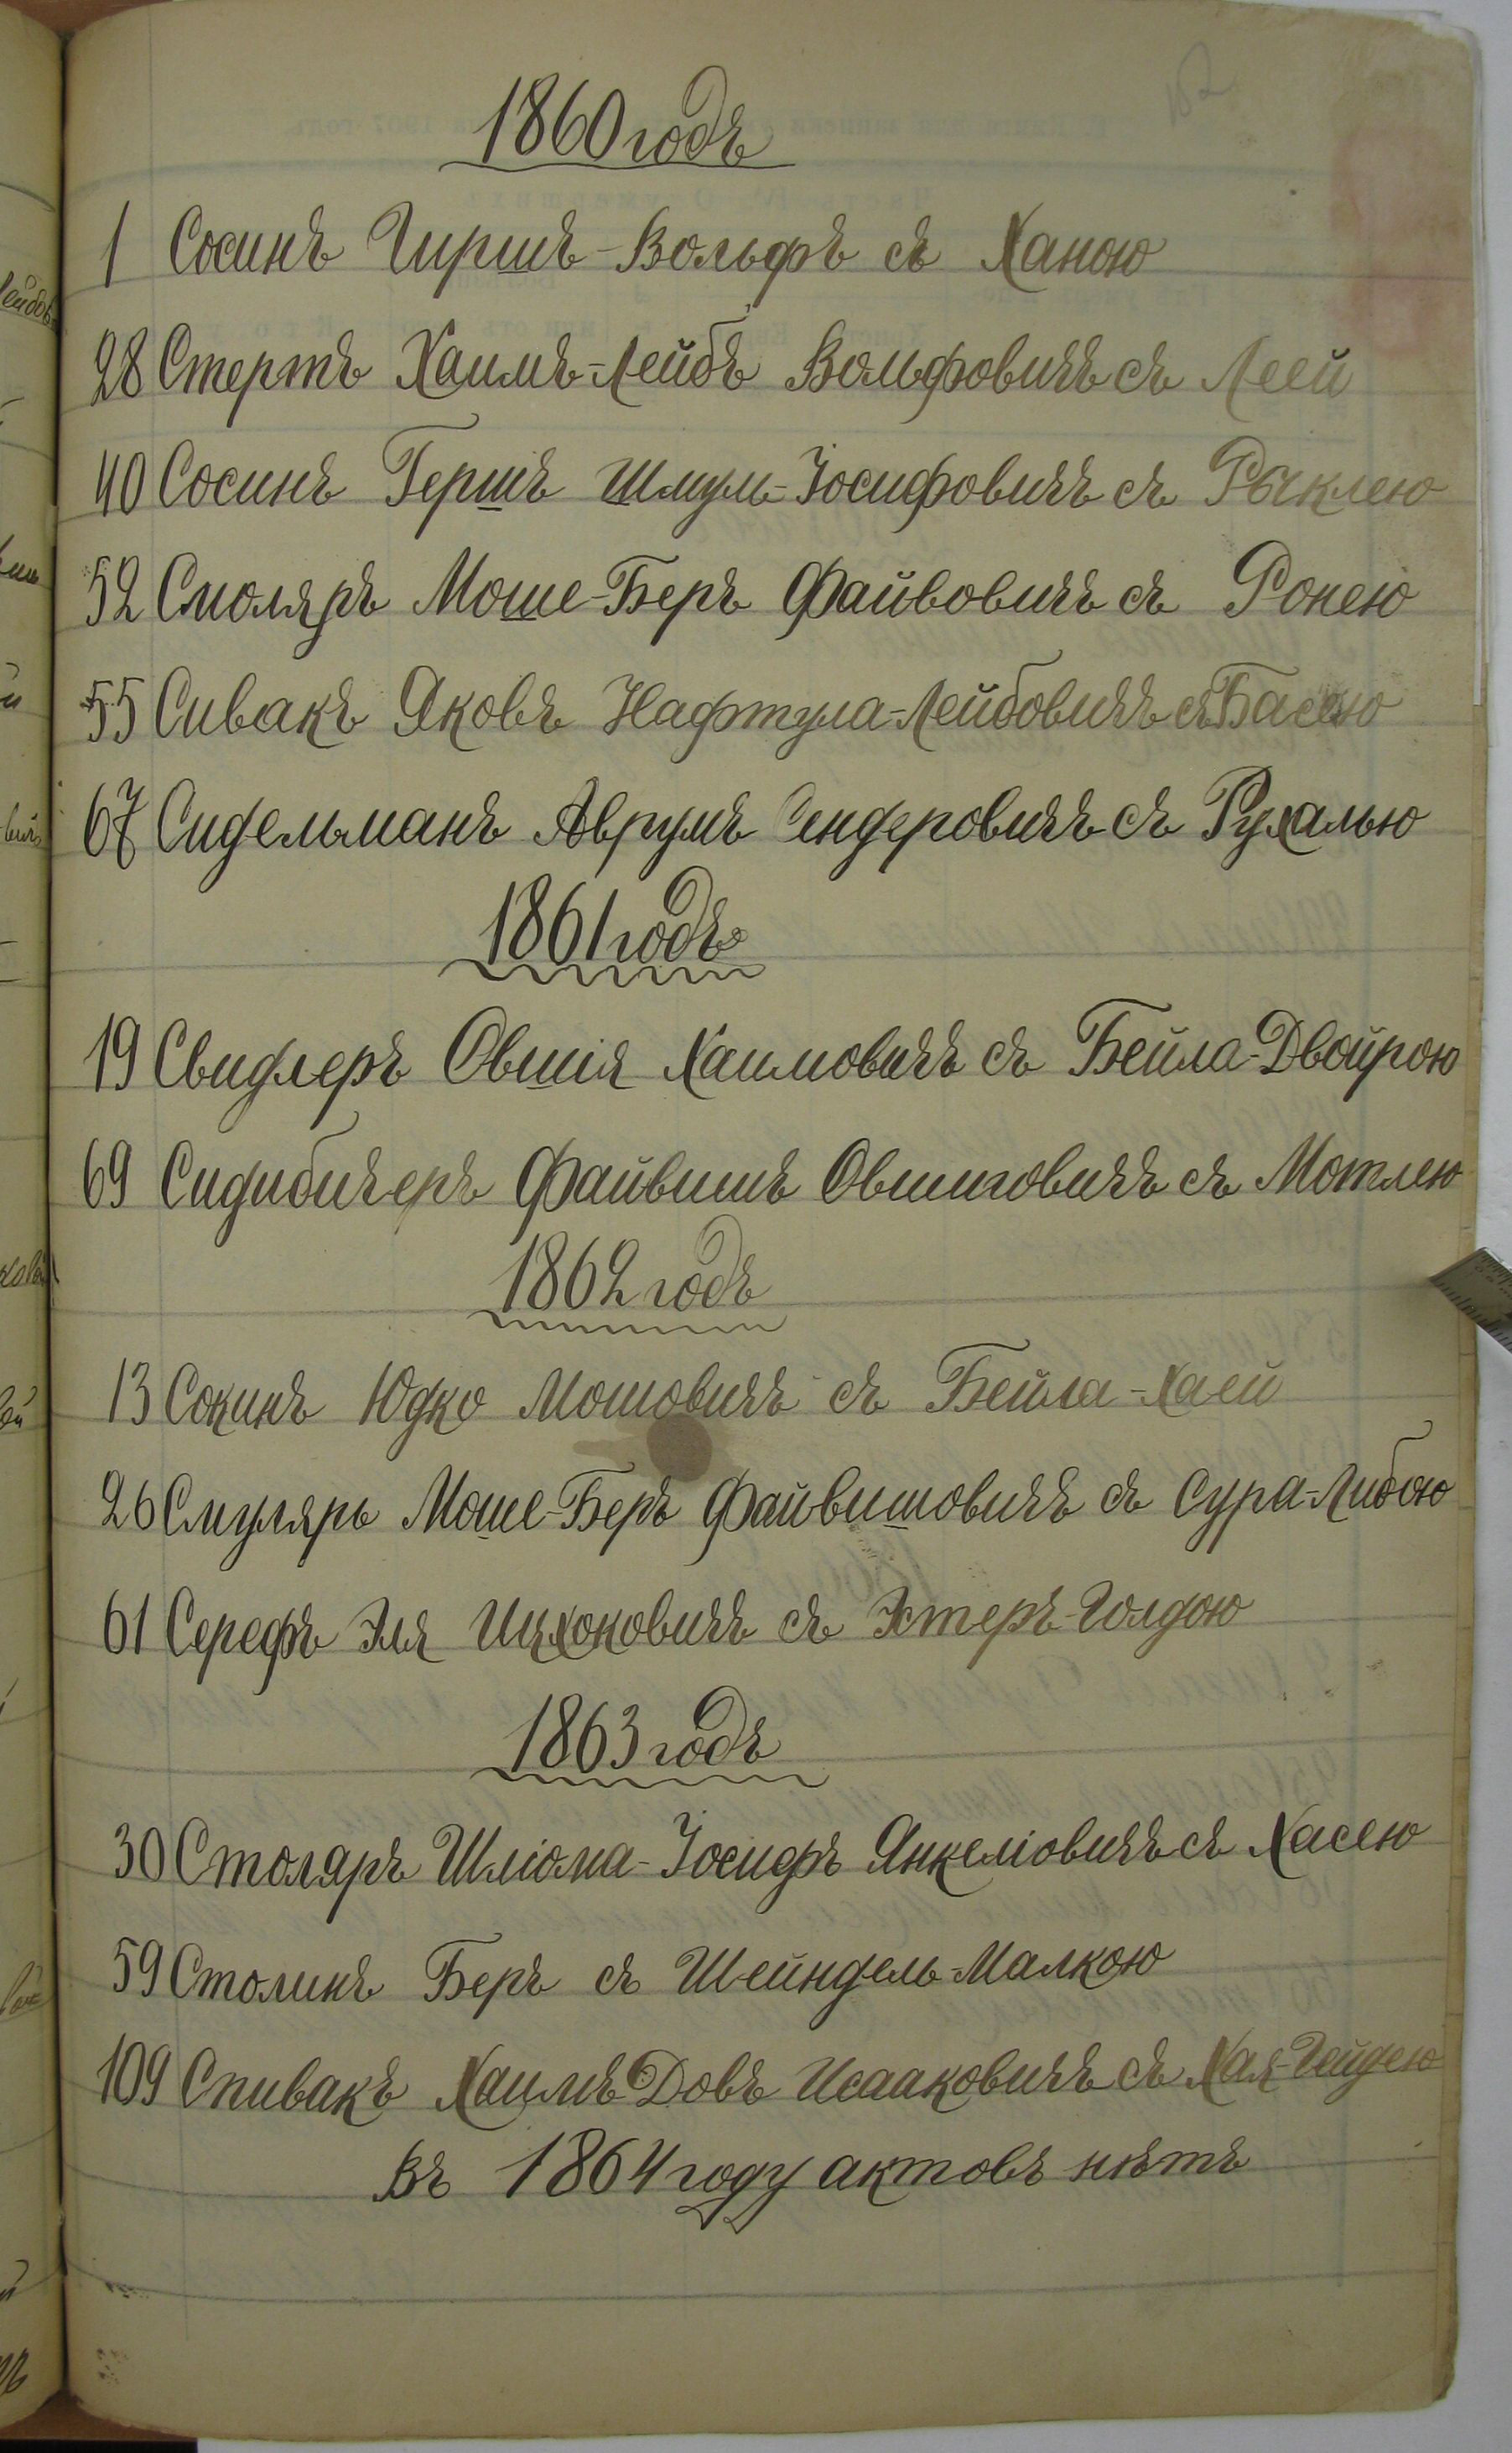 1860 годъ
1 Сосинъ Гиршъ-Вольфъ съ Ханою
28 Стертъ Хаимъ-Лейбъ Вольфовичъ съ Леей
40 Сосинъ Гершъ Шмуль-Іосифовичъ съ Рыклею
52 Смоляръ Моше-Беръ Файвовичъ съ Ронею
55 Сивакъ Яковъ Нафтула-Лейбовичъ съ Басею
67 Сидельманъ Аврумъ Сендеровичъ съ Рухалью
1861 годъ
19 Свидлеръ Овшія Хаимовичъ съ Бейла-Двойрою
69 Сидибичеръ Файвишъ Овшиговичъ съ Мотлею
1862 годъ
13 Сокинъ Юдко Мошовичъ съ Бейла-Хаей
26 Смуляръ Моше-Беръ Файвишовичъ съ Сура-Либою
61 Серефъ Эля Ицхоковичъ съ Эстеръ-Голдою
1863 годъ
30 Столяръ Шліома-Іосифъ Янкеліовичъ съ Хасею
59 Столинъ Беръ съ Шейндель-Малкою
109 Спивакъ Хаимъ Довъ Исааковичъ съ Хая-Гейдею
Въ 1864 году актовъ нѣтъ